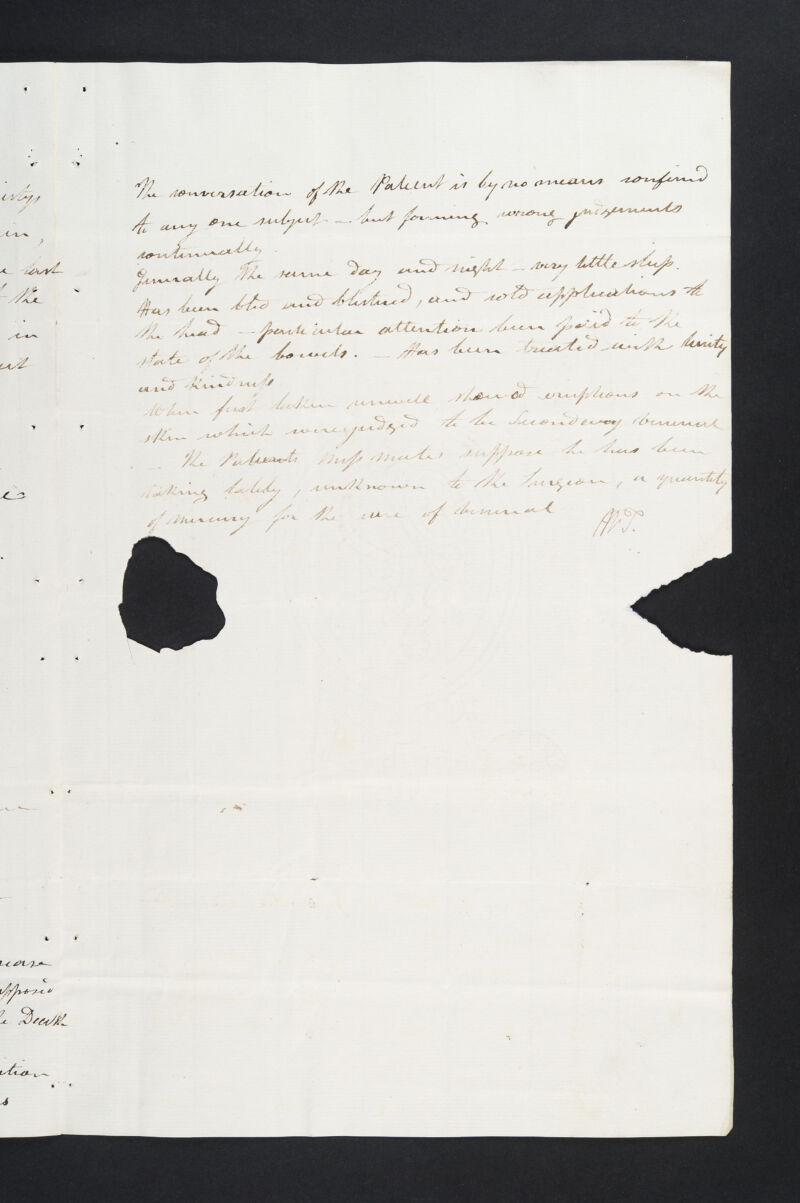 The conversation of the Patient is by no means confined
to any one subject - but forming wrong judgements
continually.
Generally the same day and night - very little sleep.
Has been bled and blistered, and cold applications to
the head - particular attention been paid to the
state of the bowels. - Has been treated with lenity
and kindness
When first taken unwell showed eruptions on the
skin which were judged to be Secondary venereal
- The Patients mess mates suppose he has been
taking lately, unknown to the Surgeon, a quantity
of mercury for the cure of venereal
in
last
the
in
Death